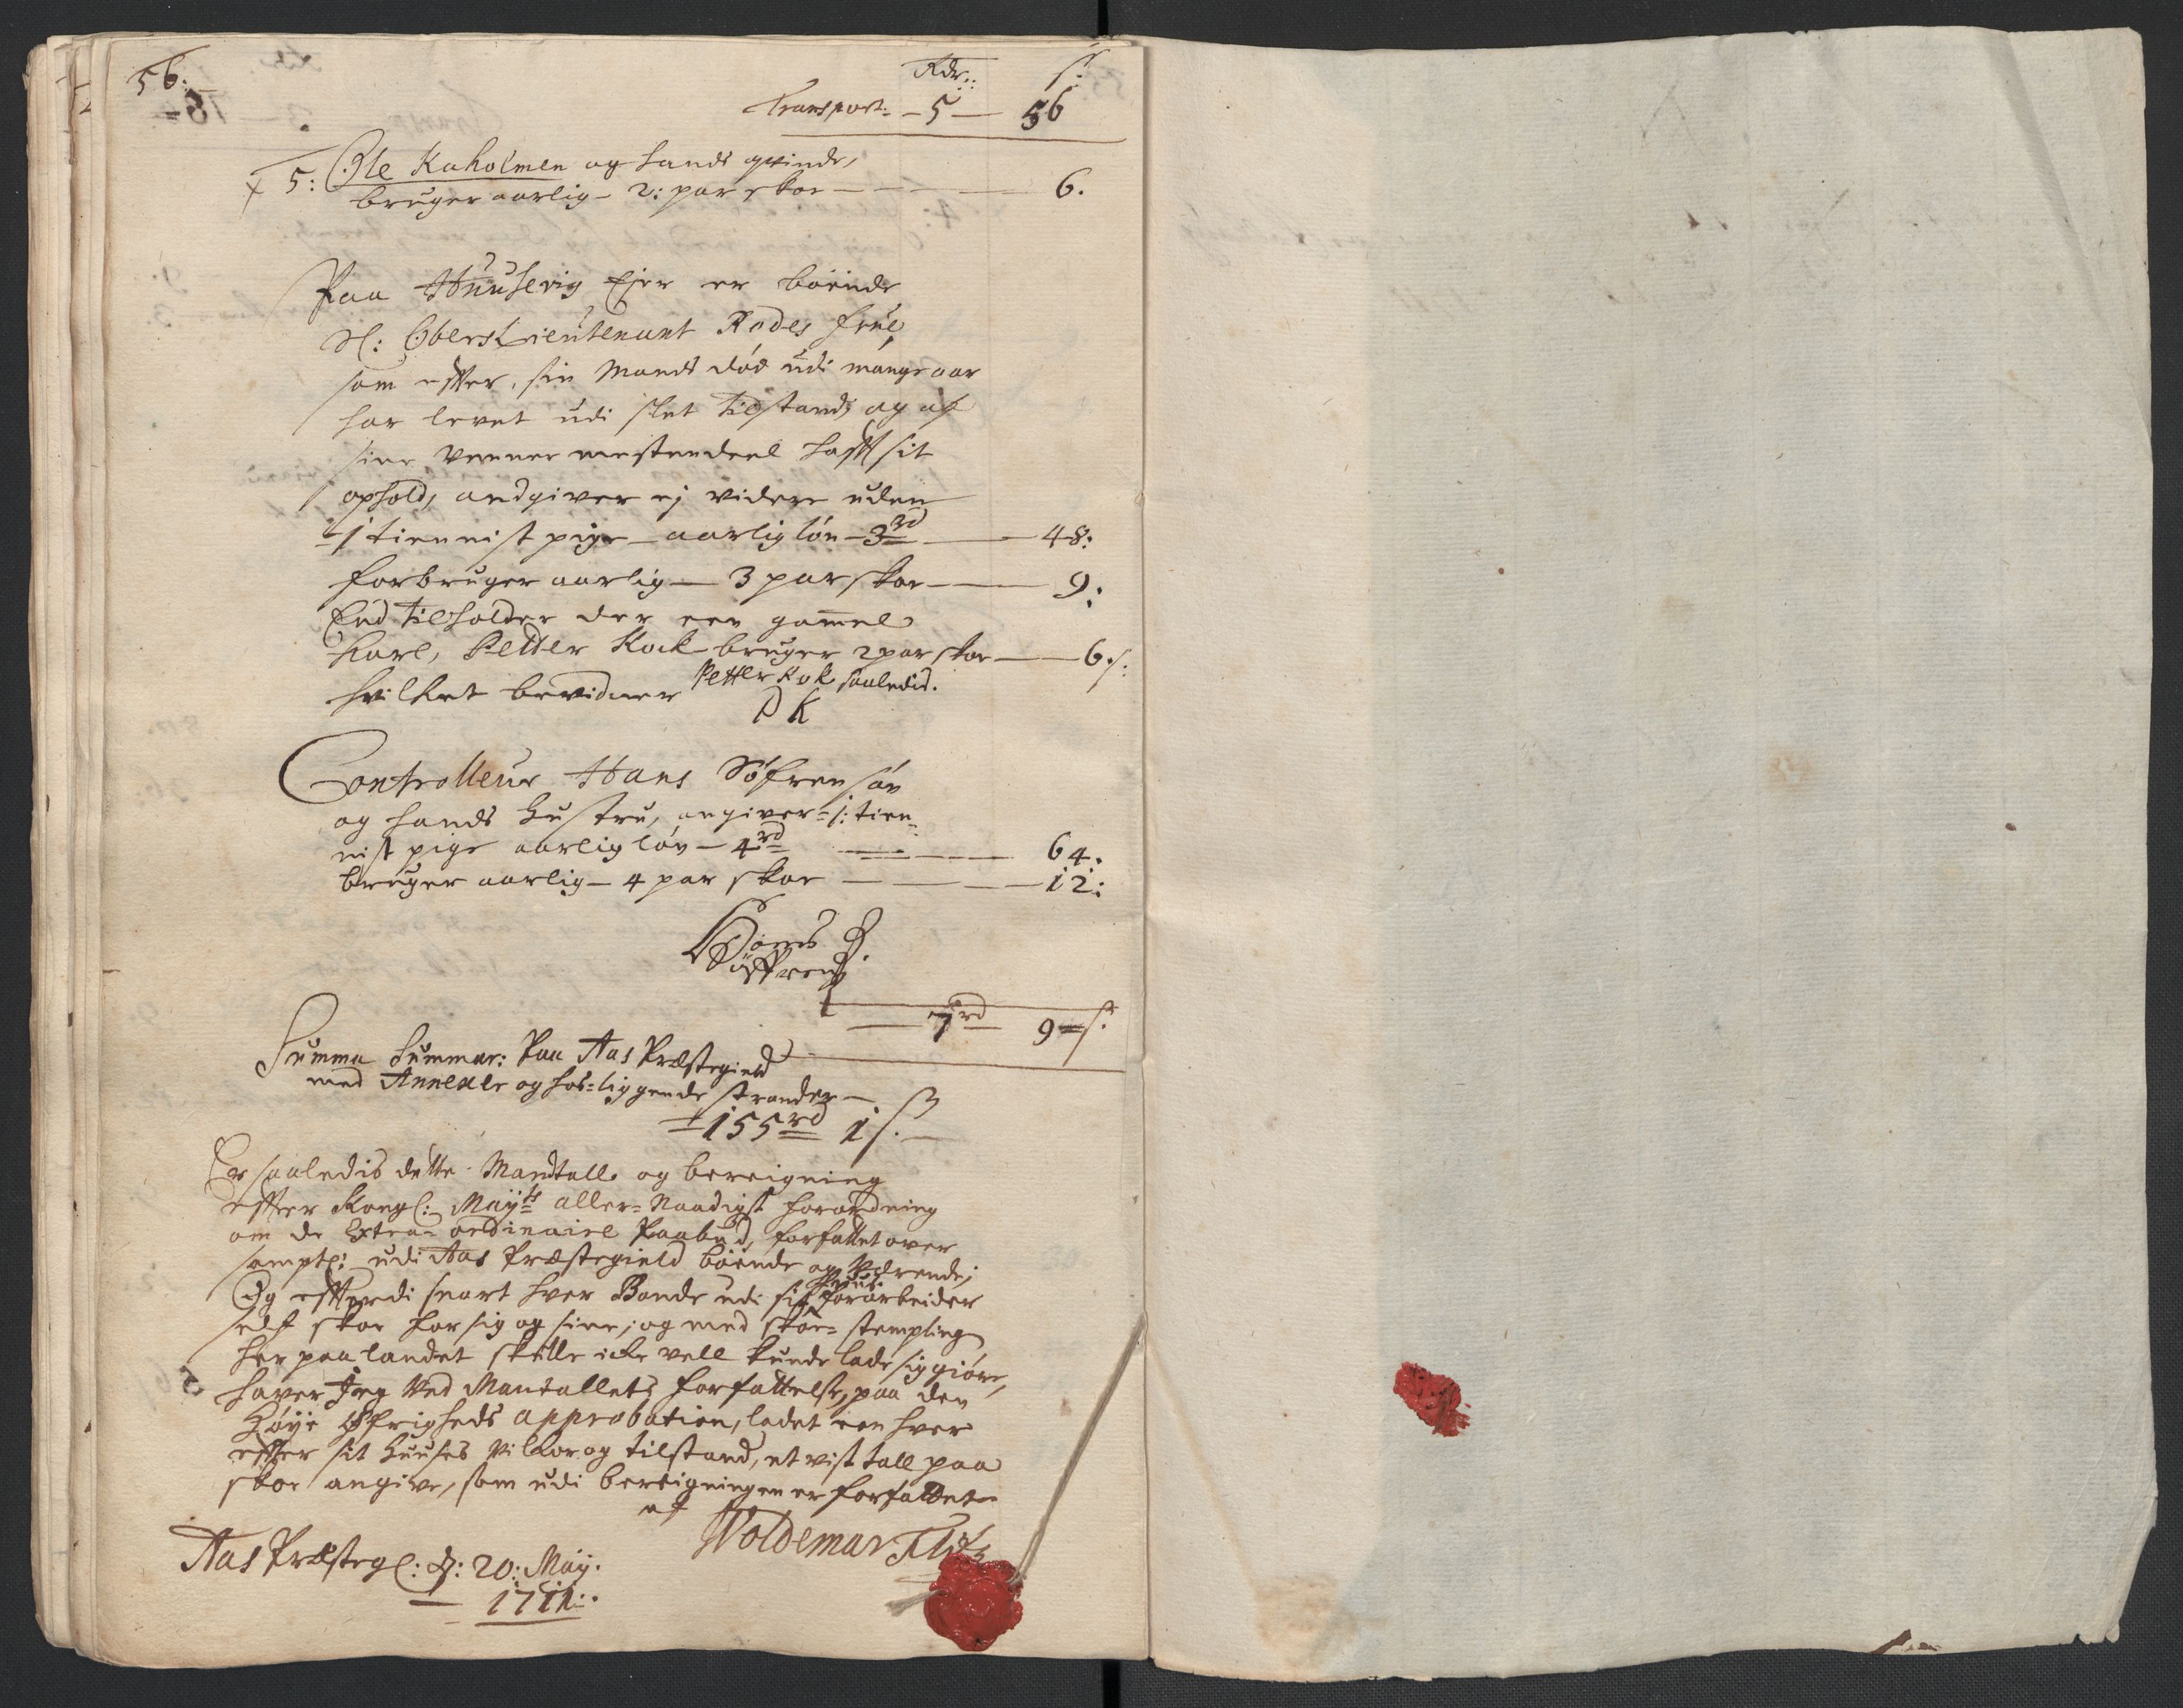 56:
Rdr: s:
Transport: — 5 — 56
x 5: Ole Kaholmen og hands qvinde,
bruger aarlig – 2: par skoe — 6.
Paa Hnusevig Ejer er boende
Sl: Oberstlieutenant Rodes frue,
som effter sin Mands død udi mange aar
har levet udi slet tilstand, og af
sine venner mestendeel hafft sit
ophold, andgiver ej videre uden
1 tiennist pige – aarlig løn – 3 rd — 48:
forbruger aarlig — 3 par skoe — 9:
End tilholder der een gamel
Karl, Petter Kock bruger 2 par skoe — 6 s:
hvilket bevidner Petter Kok saaledis.
P K
Controlleur Hans Söfrensøn
og hands Hustru, angiver 1: tien-
nist pige aarlig løn – 4 rd — 64:
bruger aarlig – 4 par skoe — 12:
Hans
Söffrens
7 rd 9 s:
Summa Summar: Paa Aas Præstegield
med Annexer og hos-liggende strander —
155 rd 1 s. —
Er saaledis dette Mandtall og bereigning
effter Kongl: Mayts aller-Naadigst forordning
om de Extra-ordinaire Paabud, forfattet over
samptl: udi Aas Præstegield boende og værende;
Og effterdi snart hver Bonde udi sit huus forarbeider
self skoe for sig og sine; og med skoe-stempling
her paa landet skulle icke vell kunde lade sig giøre,
haver Jeg ved Mantallets forfattelse, paa den
Høye Øfrigheds approbation, ladet een hver
effter sit Huuses Vilkor og tilstand, et vist tall paa
skoe angive, som udi bereigningen er forfattet
af
Woldemar
Aas Præstegl: d: 20: May.
1711.